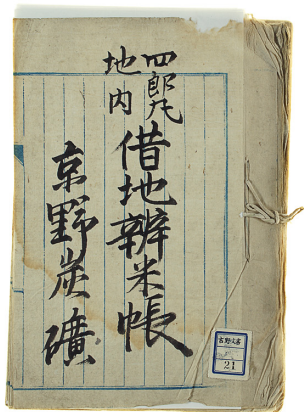 四郎丸
地内
借地辨米帳
京野炭礦
吉野文書
21